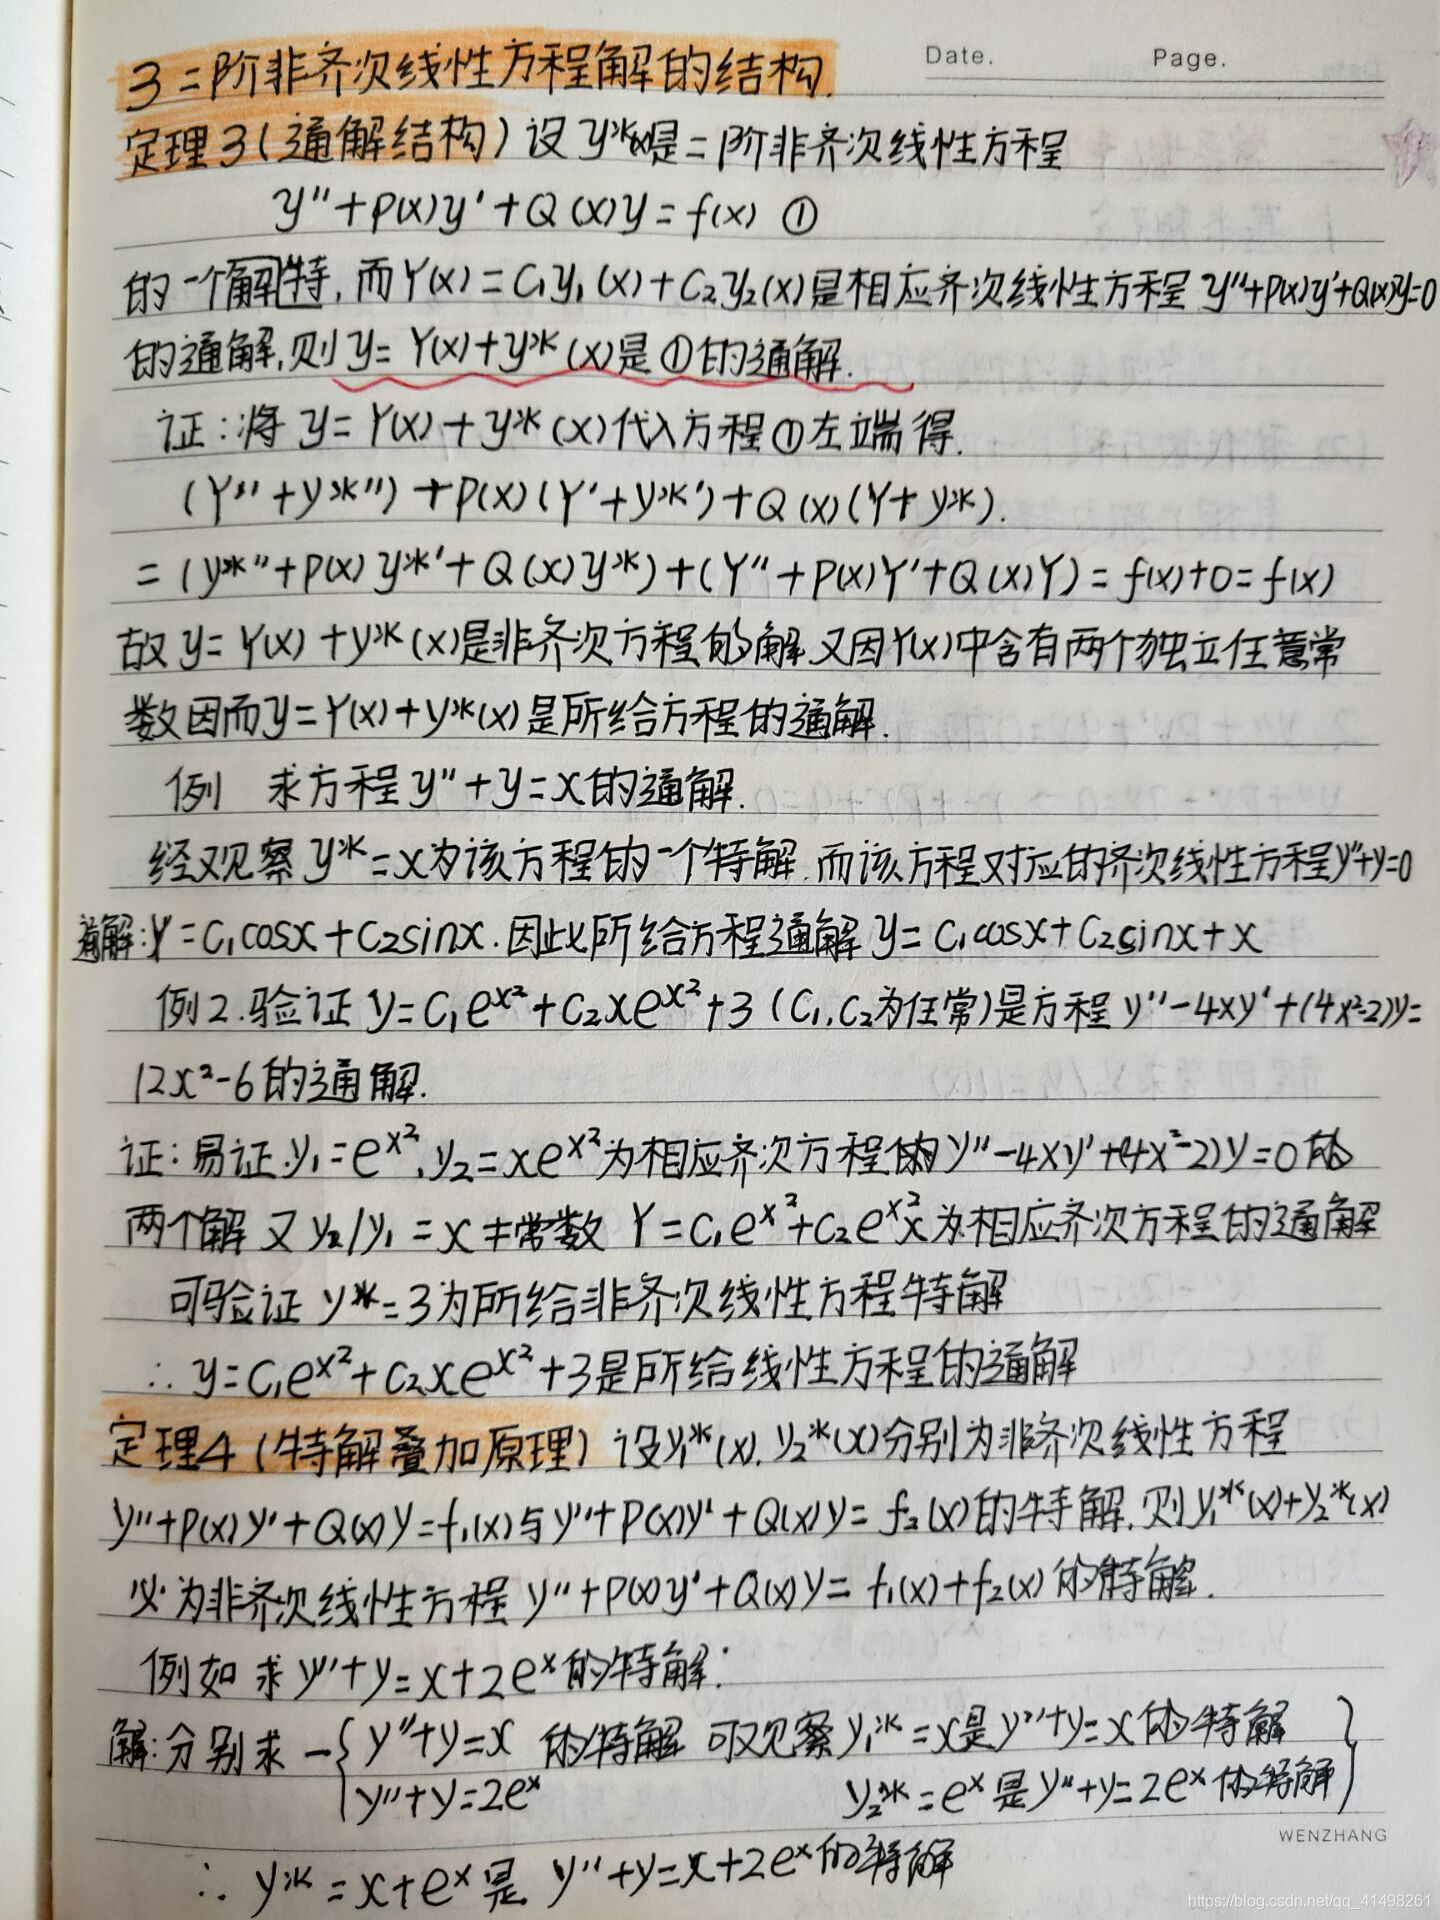 Date. Page.
3 二阶非齐次线性方程解的结构.
定理3(通解结构)设y*(x)是二阶非齐次线性方程
y''+P(x)y'+Q(x)y=f(x) ①
的一个解特,而Y(x)=C₁y₁(x)+C₂y₂(x)是相应齐次线性方程 y''+P(x)y'+Q(x)y=0
的通解,则y=Y(x)+y*(x)是①的通解.
证:将y=Y(x)+y*(x)代入方程①左端得.
(Y''+y*'')+P(x)(Y'+y*')+Q(x)(Y+y*).
=(y*''+P(x)y*'+Q(x)y*)+(Y''+P(x)Y'+Q(x)Y)=f(x)+0=f(x)
故y=Y(x)+y*(x)是非齐次方程的解.又因Y(x)中含有两个独立任意常
数因而y=Y(x)+y*(x)是所给方程的通解.
例 求方程y''+y=x的通解.
经观察y*=x为该方程的一个特解.而该方程对应的齐次线性方程y''+y=0
通解:Y=C₁cosx+C₂sinx.因此所给方程通解y=C₁cosx+C₂sinx+x
例2.验证y=C₁e^x²+C₂xe^x²+3(C₁,C₂为任常)是方程y''-4xy'+(4x²-2)y=
12x²-6的通解.
证:易证y₁=e^x²,y₂=xe^x²为相应齐次方程的y''-4xy'+(4x²-2)y=0的
两个解 又y₂/y₁=x≠常数 Y=C₁e^x²+C₂e^x²x为相应齐次方程的通解
可验证y*=3为所给非齐次线性方程特解
∴y=C₁e^x²+C₂xe^x²+3是所给线性方程的通解
定理4(特解叠加原理)设y₁*(x),y₂*(x)分别为非齐次线性方程
y''+P(x)y'+Q(x)y=f₁(x)与y''+P(x)y'+Q(x)y=f₂(x)的特解,则y₁*(x)+y₂*(x)
必为非齐次线性方程y''+P(x)y'+Q(x)y=f₁(x)+f₂(x)的特解.
例如 求y''+y=x+2e^x的特解:
解:分别求 {y''+y=x 的特解 可观察y₁*=x是y''+y=x的特解
y''+y=2e^x y₂*=e^x是y''+y=2e^x的特解}
WENZHANG
∴ y*=x+e^x是y''+y=x+2e^x的特解
https://blog.csdn.net/qq_41498261